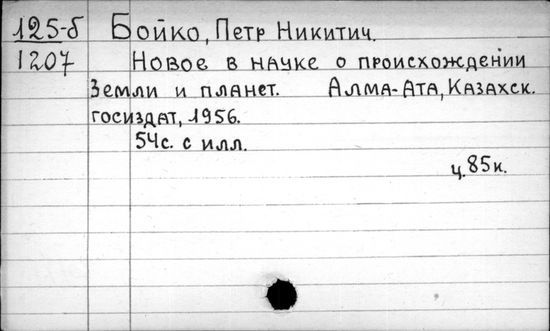 125-б Бойко, Петр Никитич.
1207 Новое в науке о происхождении
Земли и планет. Алма-Ата, Казахск.
госиздат, 1956.
54с. с илл.
ц. 85к.